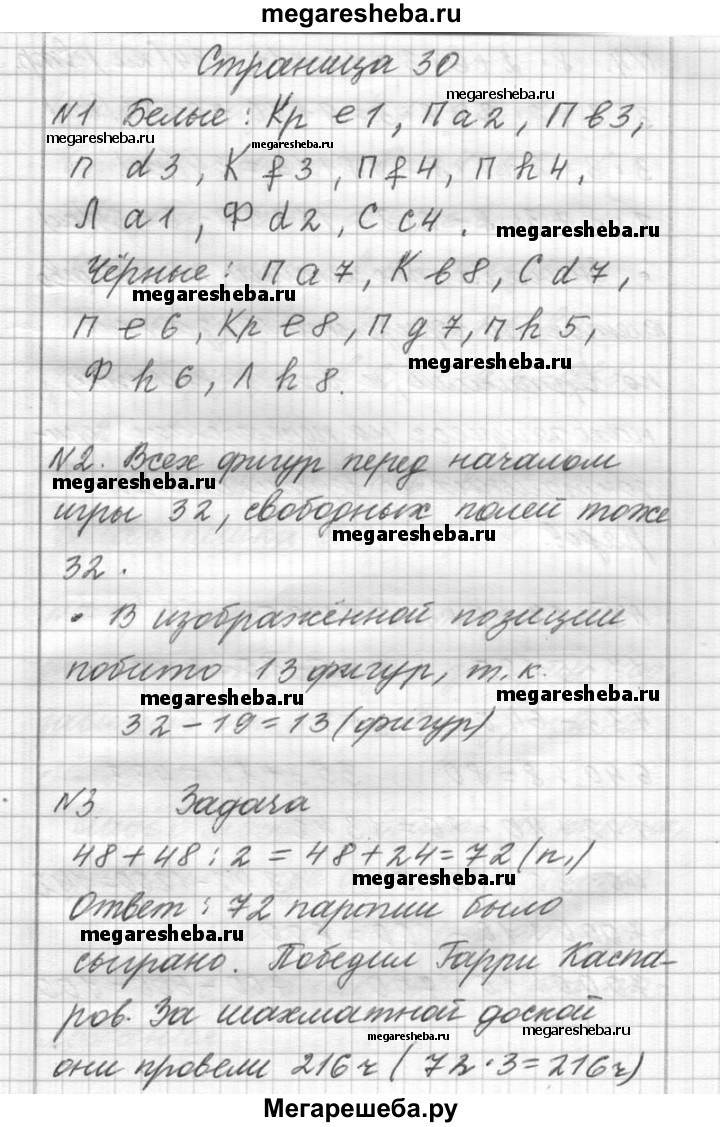 megaresheba.ru
Страница 30
megaresheba.ru
№1 Белые: Кр e1, П a2, П в3,
megaresheba.ru megaresheba.ru
п d3, К f3, П f4, п h4,
Л a1, Ф d2, С c4.
megaresheba.ru
Чёрные: п a7, К в8, С d7,
megaresheba.ru
п e6, Кр e8, п g7, п h5,
megaresheba.ru
Ф h6, Л h8.
№2. Всех фигур перед началом
megaresheba.ru
игры 32, свободных полей тоже
megaresheba.ru
32.
• В изображённой позиции
побито 13 фигур, т.к.
megaresheba.ru megaresheba.ru
32-19=13 (фигур)
№3 Задача
48+48:2=48+24=72 (п.)
megaresheba.ru
Ответ: 72 партии было
megaresheba.ru
сыграно. Победил Гарри Каспа-
ров. За шахматной доской
megaresheba.ru megaresheba.ru
они провели 216 ч (72·3=216ч)
Мегарешеба.ру